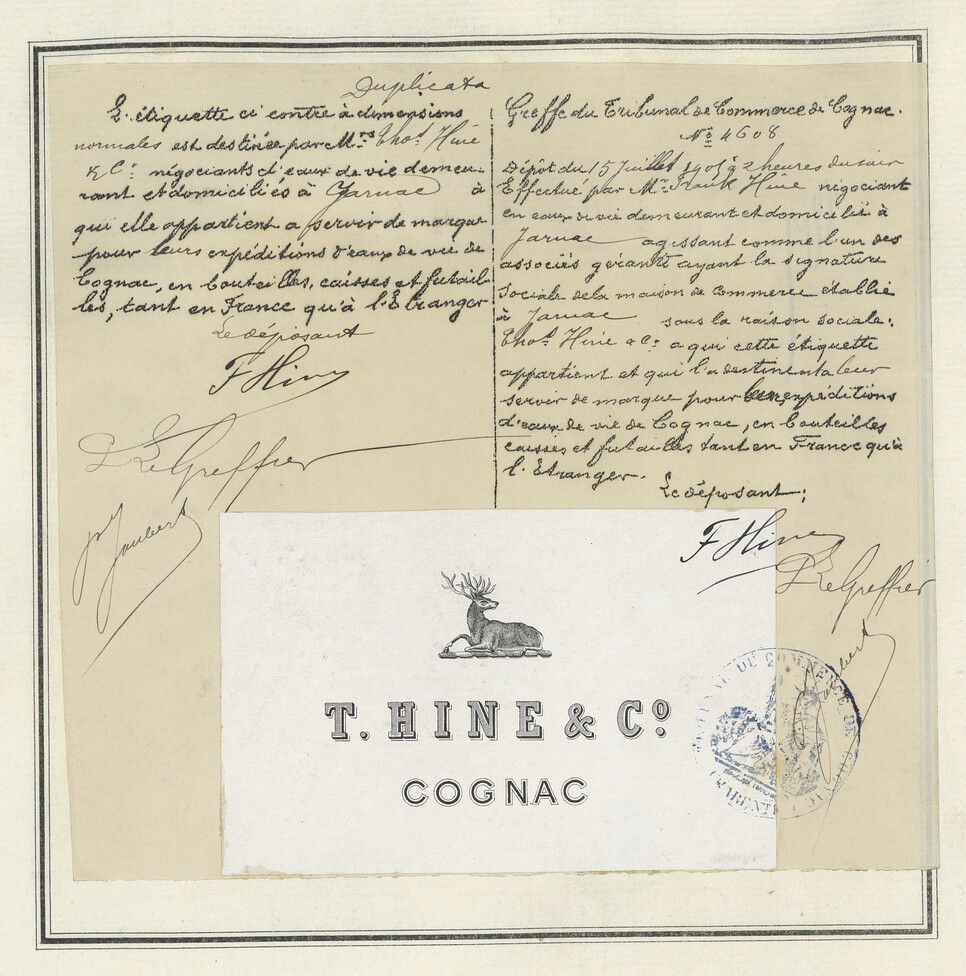 Duplicata
L'étiquette ci contre à dimensions
normales est destinée par Mrs Thos Hine
& Cie négociants d'eaux de vie demeu-
rant et domiciliés à Jarnac à
qui elle appartient a servir de marque
pour leurs expéditions d'eaux de vie de
Cognac, en bouteilles, caisses et futail-
les, tant en France qu'à l'Etranger
Le déposant
F Hine
Le Greffier
Joubert
Greffe du Tribunal de Commerce de Cognac.
No 4608
Dépôt du 15 Juillet 1905 à 2 heures du soir
Effectué par Mr Frank Hine négociant
en eaux de vie demeurant et domicilié à
Jarnac agissant comme l'un des
associés gérants ayant la signature
sociale de la maison de commerce établie
à Jarnac sous la raison sociale:
Thos Hine & Cie a qui cette étiquette
appartient et qui l'a destinent a leur
servir de marque pour leurs expéditions
d'eaux de vie de Cognac, en bouteilles
caisses et futailles tant en France qu'à
l'Etranger.
Le déposant;
F Hine
Le Greffier
Joubert
T. HINE & Co
COGNAC
TRIBUNAL DE COMMERCE DE COGNAC
CHARENTE